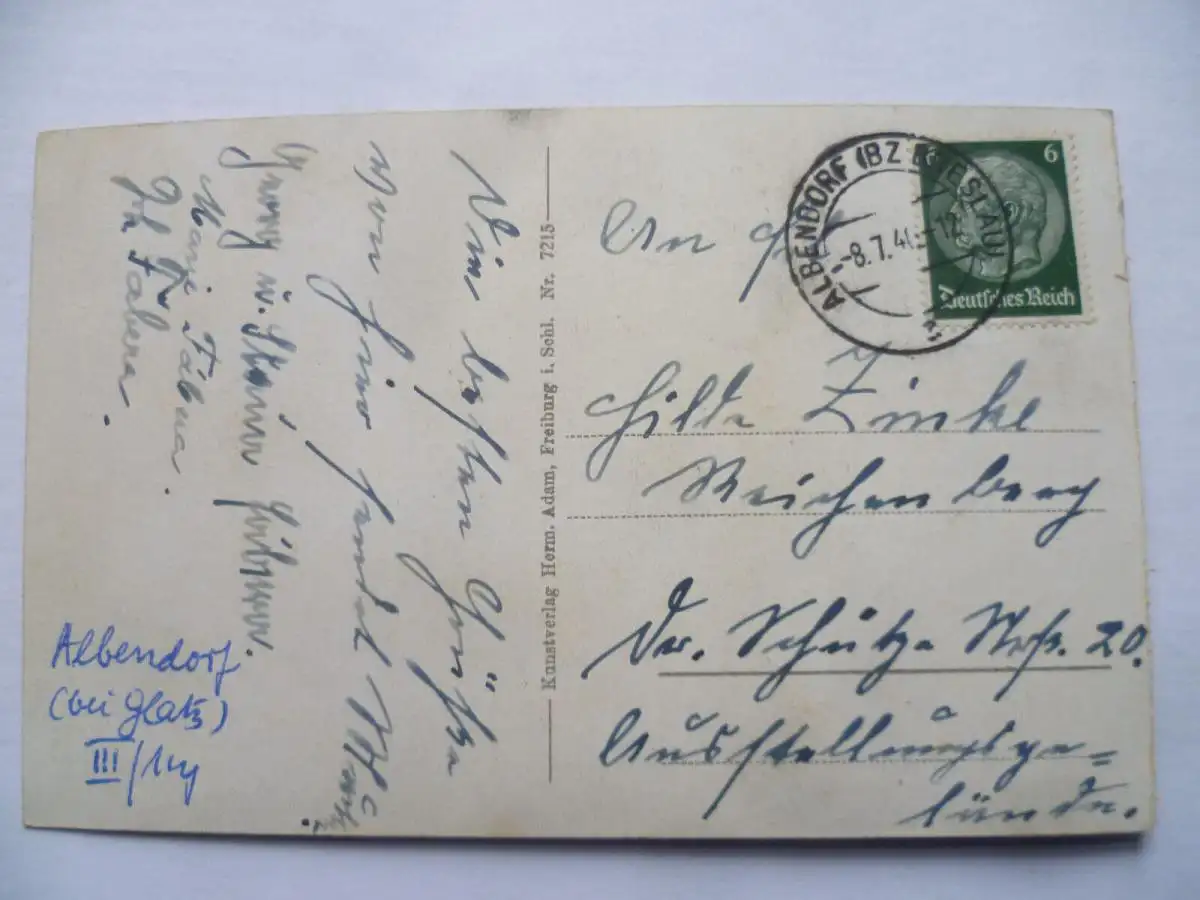 Die besten Grüße
von hier sendet
Georg u.
Marie Fabera.
Jh Fabera.
Albendorf
(bei Glatz)
III/14
Kunstverlag Herm. Adam, Freiburg i. Schl. Nr. 7215
ALBENDORF (BZ BRESLAU)
-8.7.4 -12
6
Deutsches Reich
An
Hilde Zinke
Reichenberg
Dr. Schütze Str. 20.
Ausstellungsge=
lände.